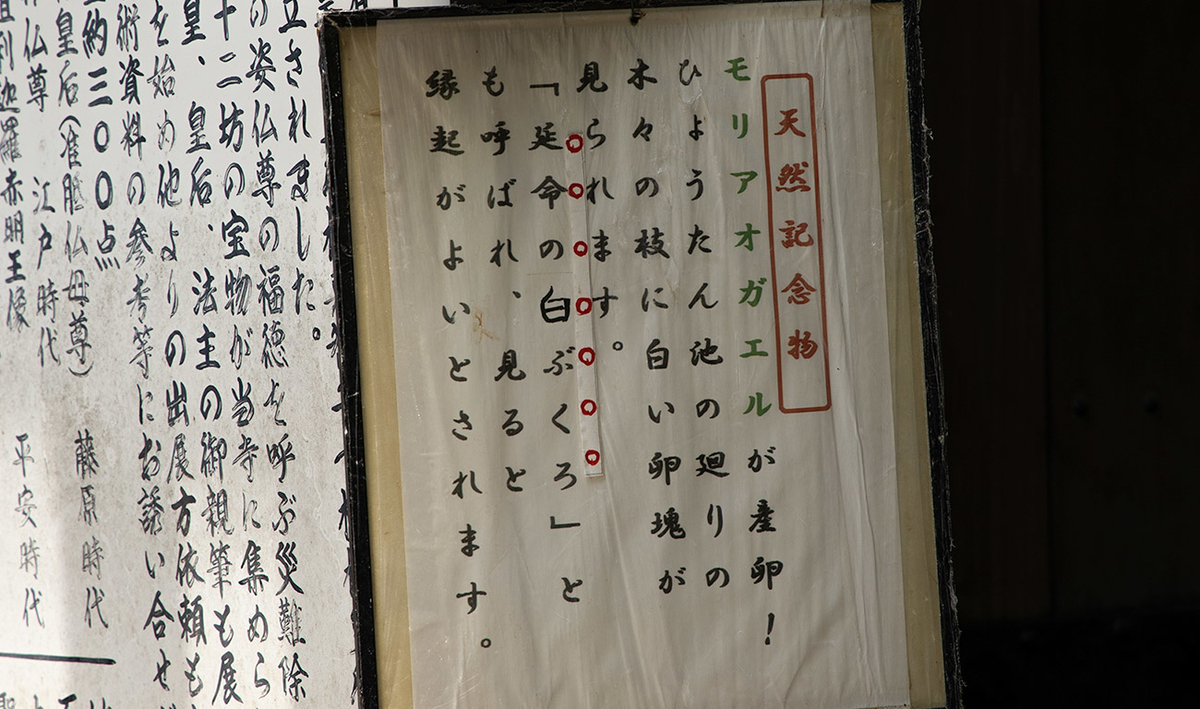 天然記念物
モリアオガエルが産卵!
ひょうたん池の廻りの
木々の枝に白い卵塊が
見られます。
「延命の白ぶくろ」と
も呼ばれ、見ると
縁起がよいとされます。
立されました。
の姿仏尊の福徳を呼ぶ災難除
十二坊の宝物が当寺に集めら
皇、皇后、法主の御親筆も展
を始め他よりの出展方依頼も
術資料の参考等にお誘い合せ
納三〇〇点
皇后(准胝仏母尊) 藤原時代
仏尊 江戸時代
迦羅赤明王像 平安時代